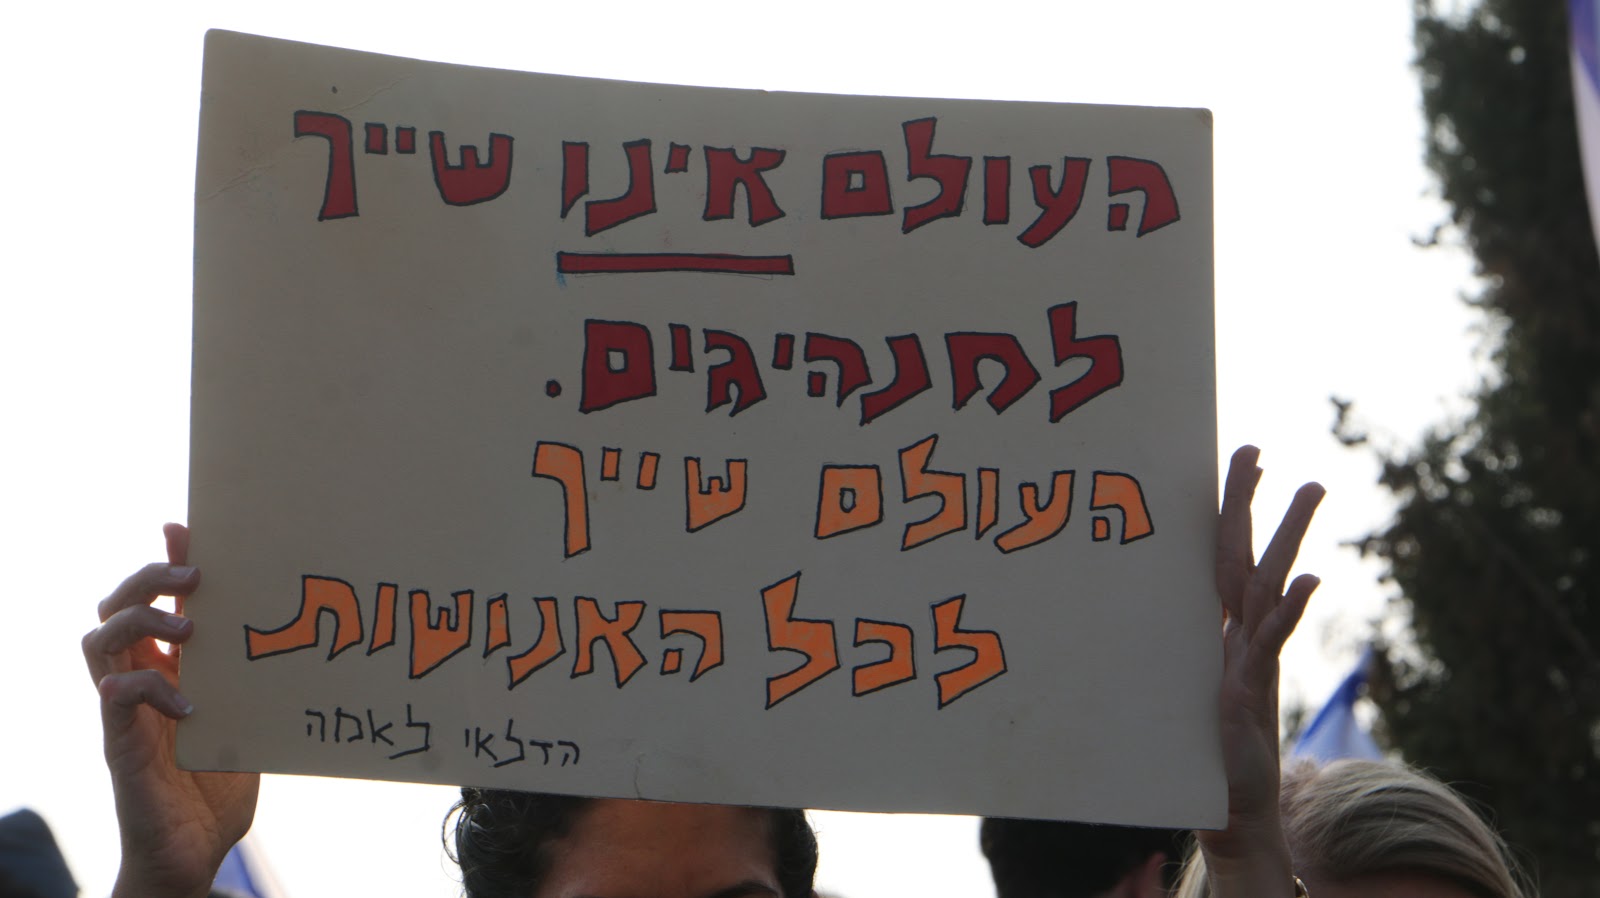 העולם אינו שייך
למנהיגים.
העולם שייך
לכל האנושות
הדלאי לאמה